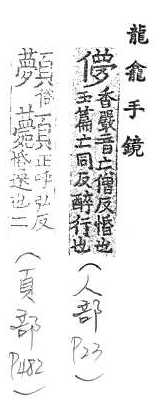 龍龕手鏡
儚香嚴音亡僧反惛也
玉篇亡同反醉行也
(人部P23)
俗正呼弘反
惛迷也二
(頁部P482)